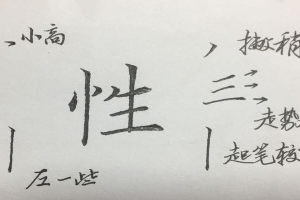 小高
撇稍
性
走势
左一些
起笔较